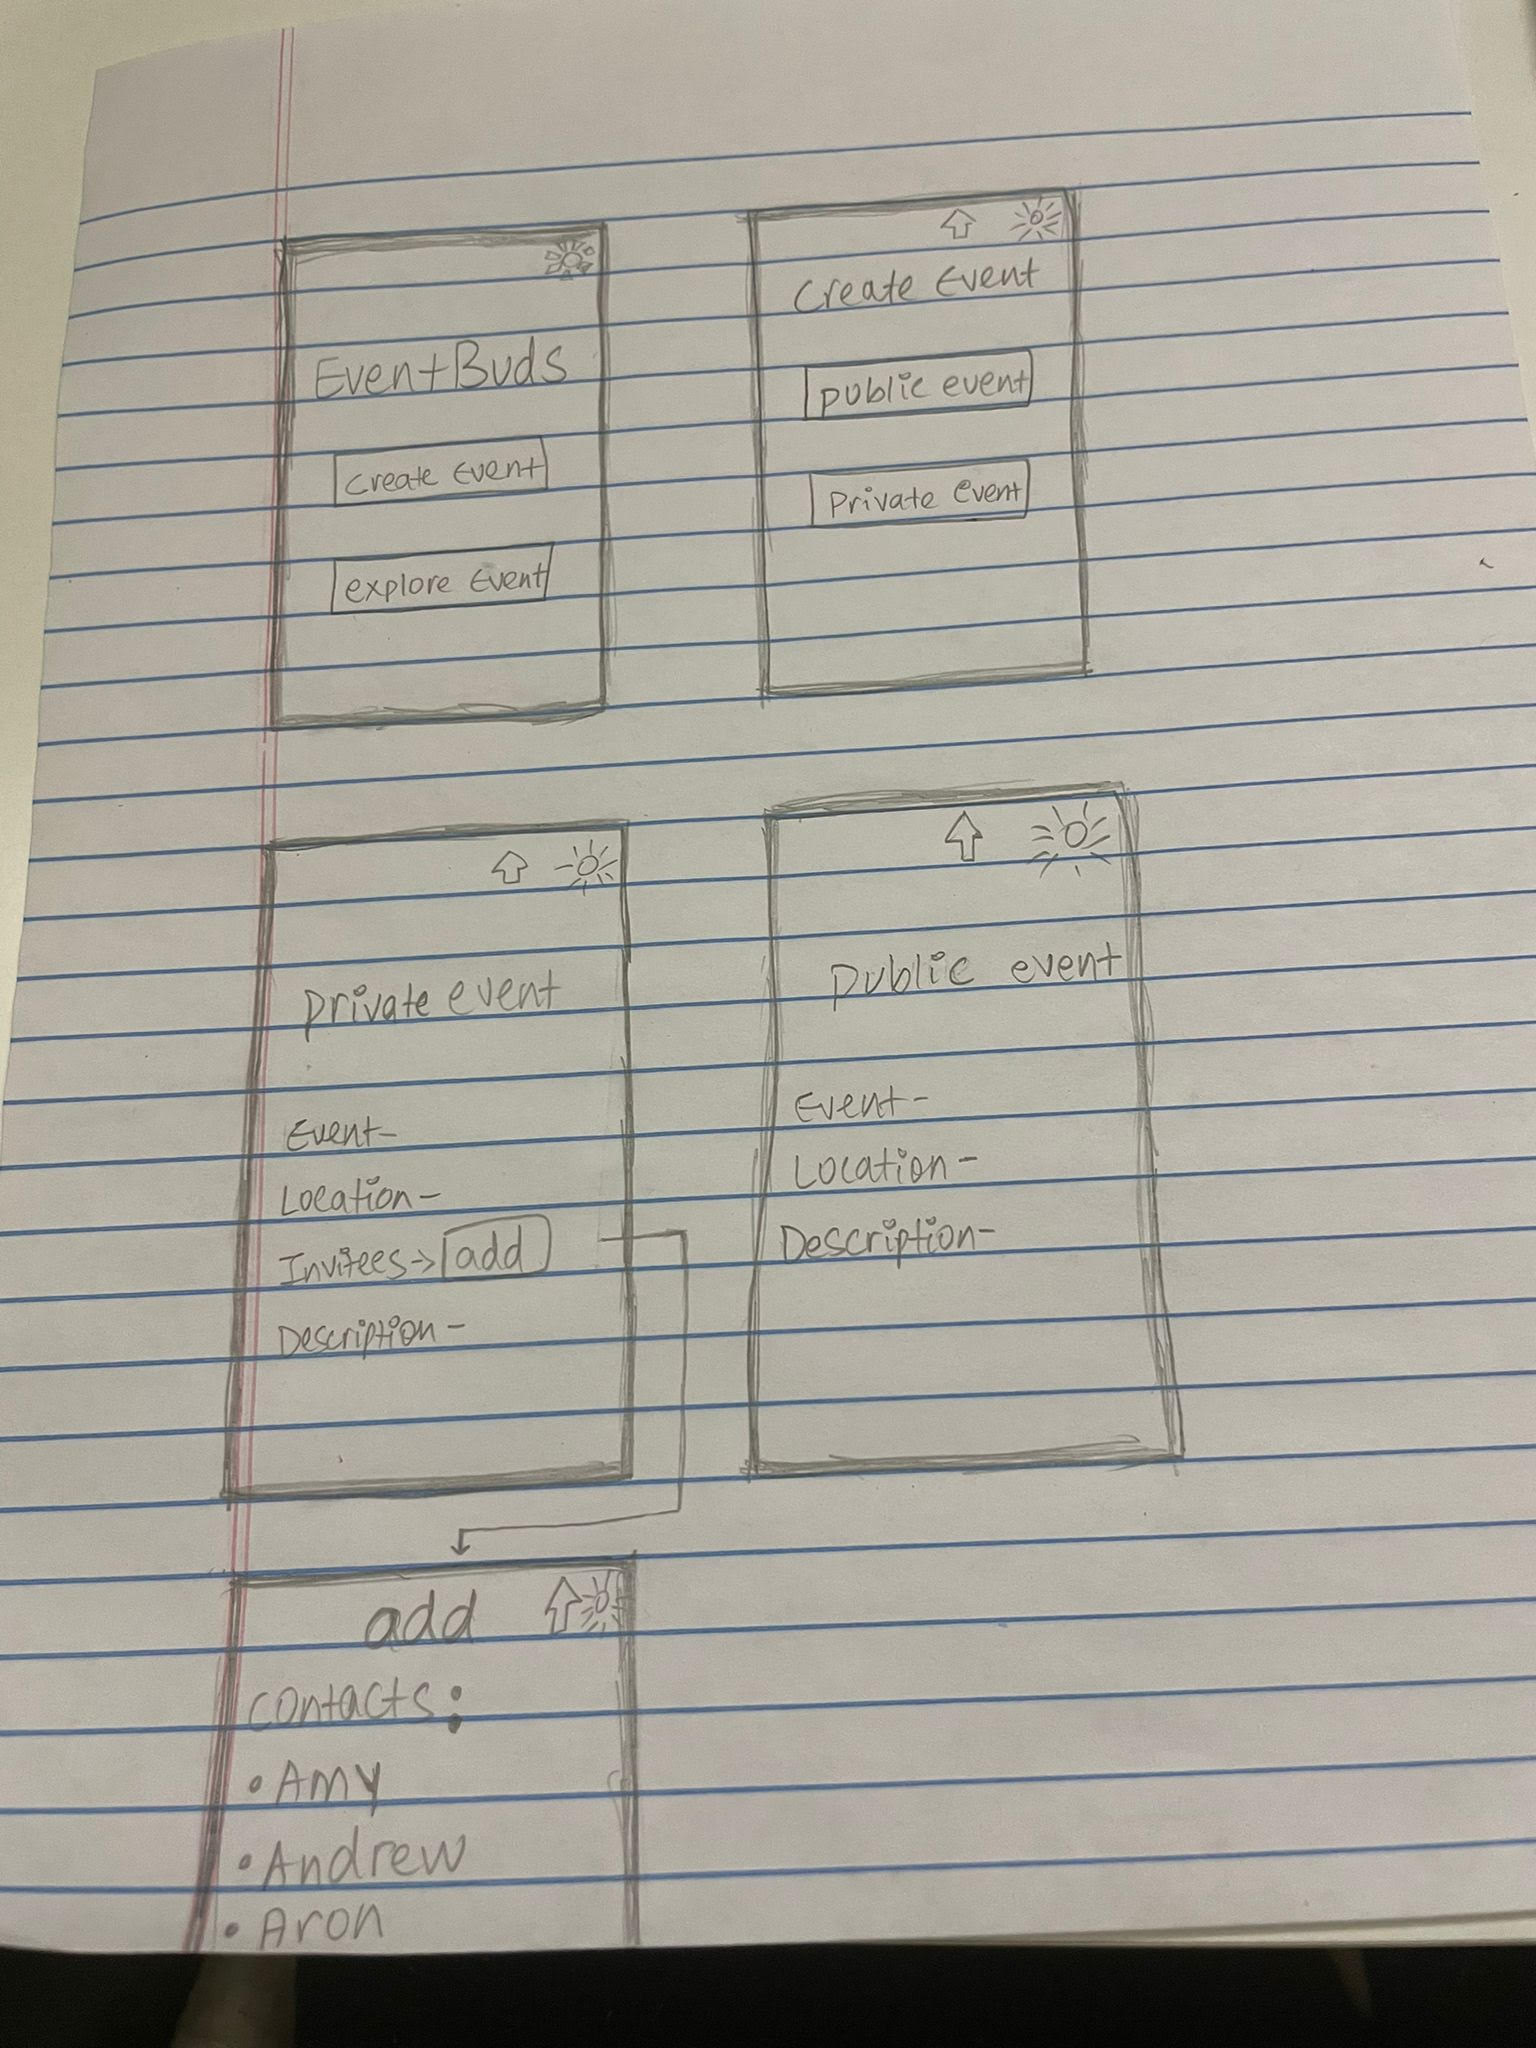 EventBuds
create Event
explore Event
Create Event
public event
Private event
private event
Event-
Location-
Invitees→ add
Description-
public event
Event-
Location-
Description-
add
contacts:
• Amy
• Andrew
• Aron